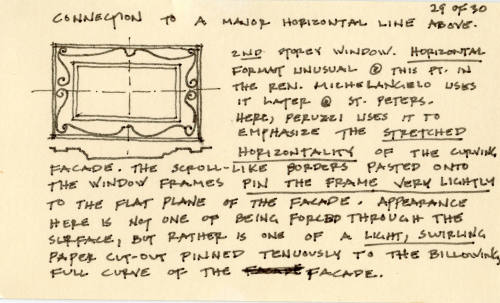 29 OF 30
CONNECTION TO A MAJOR HORIZONTAL LINE ABOVE.
2ND STOREY WINDOW. HORIZONTAL
FORMAT UNUSUAL @ THIS PT. IN
THE REN. MICHELANGELO USES
IT LATER @ ST. PETERS.
HERE, PERUZZI USES IT TO
EMPHASIZE THE STRETCHED
HORIZONTALITY OF THE CURVING
FACADE. THE SCROLL-
LIKE BORDERS PASTED ONTO
THE WINDOW FRAMES PIN THE FRAME VERY LIGHTLY
TO THE FLAT PLANE OF THE FACADE. APPEARANCE
HERE IS NOT ONE OF BEING FORCED THROUGH THE
SURFACE, BUT RATHER IS ONE OF A LIGHT, SWIRLING
PAPER CUT-OUT PINNED TENUOUSLY TO THE BILLOWING,
FULL CURVE OF THE FACADE FACADE.